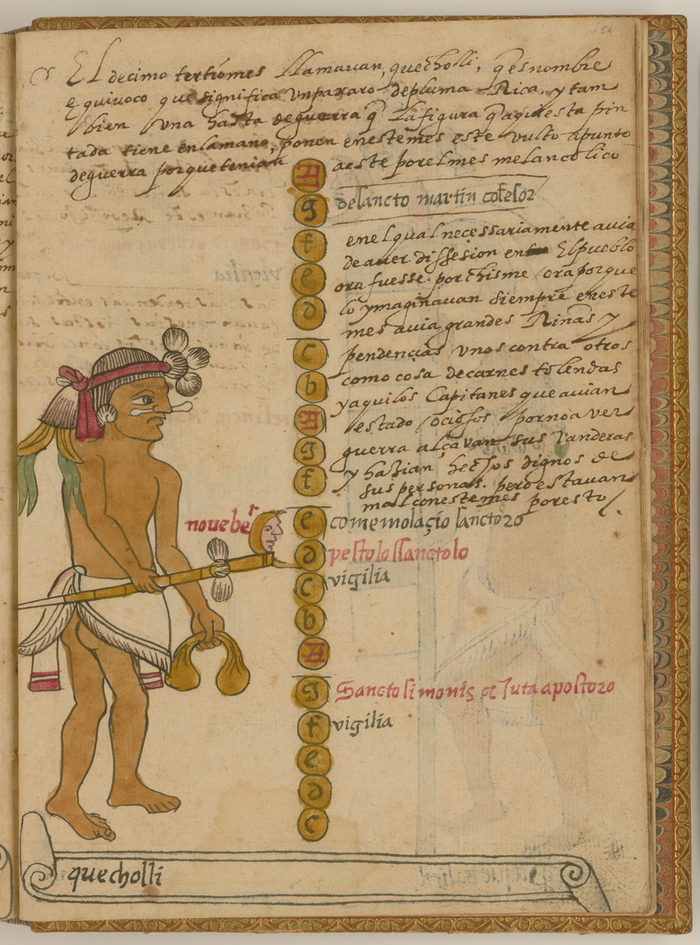 154
El decimo tertiomes llamauan, quecholli, q̃ es nombre
equiuoco que significa vn paxaro de pluma Rica, y tam
bien vna hasta de guerra q̃ la figura q̃ aqui esta pin
tada tiene en la mano, ponen en estemes este vulto apunto
de guerra porque tenian a este por el mes melancolico
A
g delancto martin cõfesor
f enel qual necessariamente auia
de auer dissesion en El pueblo
e ora fuesse por chisme, ora porque
d lo ymaginauan siempre eneste
mes auia grandes Rinas y
c pendencias vnos contra otros
b como cosa de carnes tolendas
y aquilos Capitanes que auian
A estado ociosos por no a ver
g guerra alçavan sus vanderas
f y hazian hechos dignos de
sus personas. pero estauan
mal con estemes por esto /.
nouebeʳ
e comemolaçio sanctozo
d pestolo sanctolo
c vigilia
b
A
g Sancto simonis et Juta apostozo
f vigilia
e
d
c
quecholli